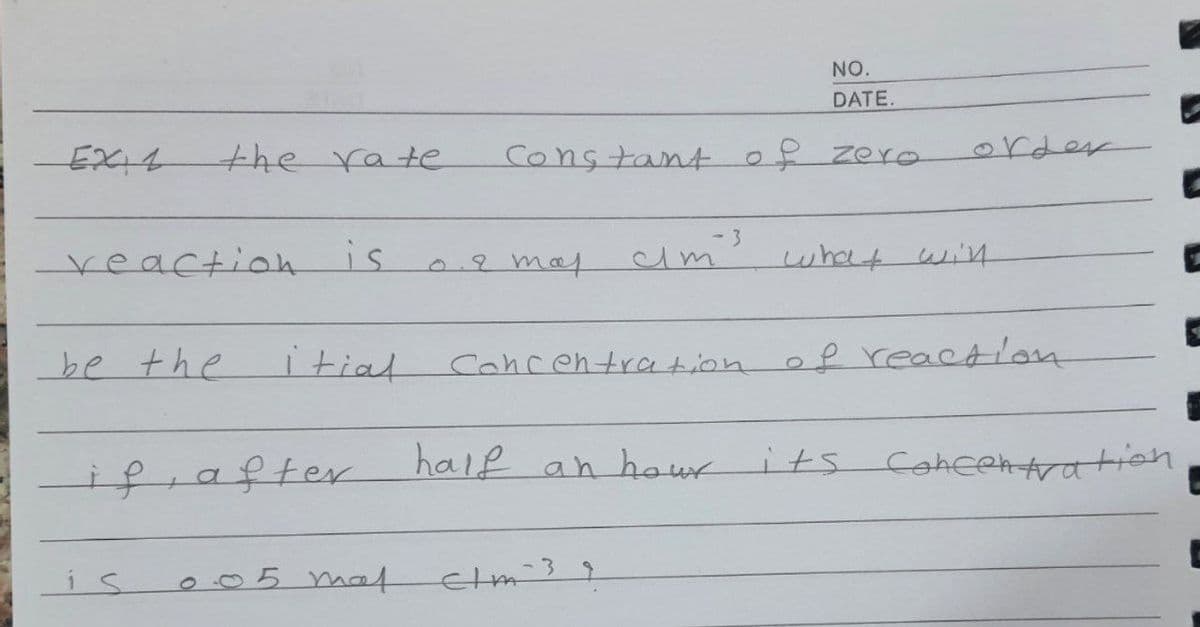 NO.
DATE.
EX, 1 the rate constant of zero order
reaction is 0.2 mol dm⁻³ what will
be the itial concentration of reaction
if, after half an hour its concentration
is 0.05 mol dm⁻³ ?